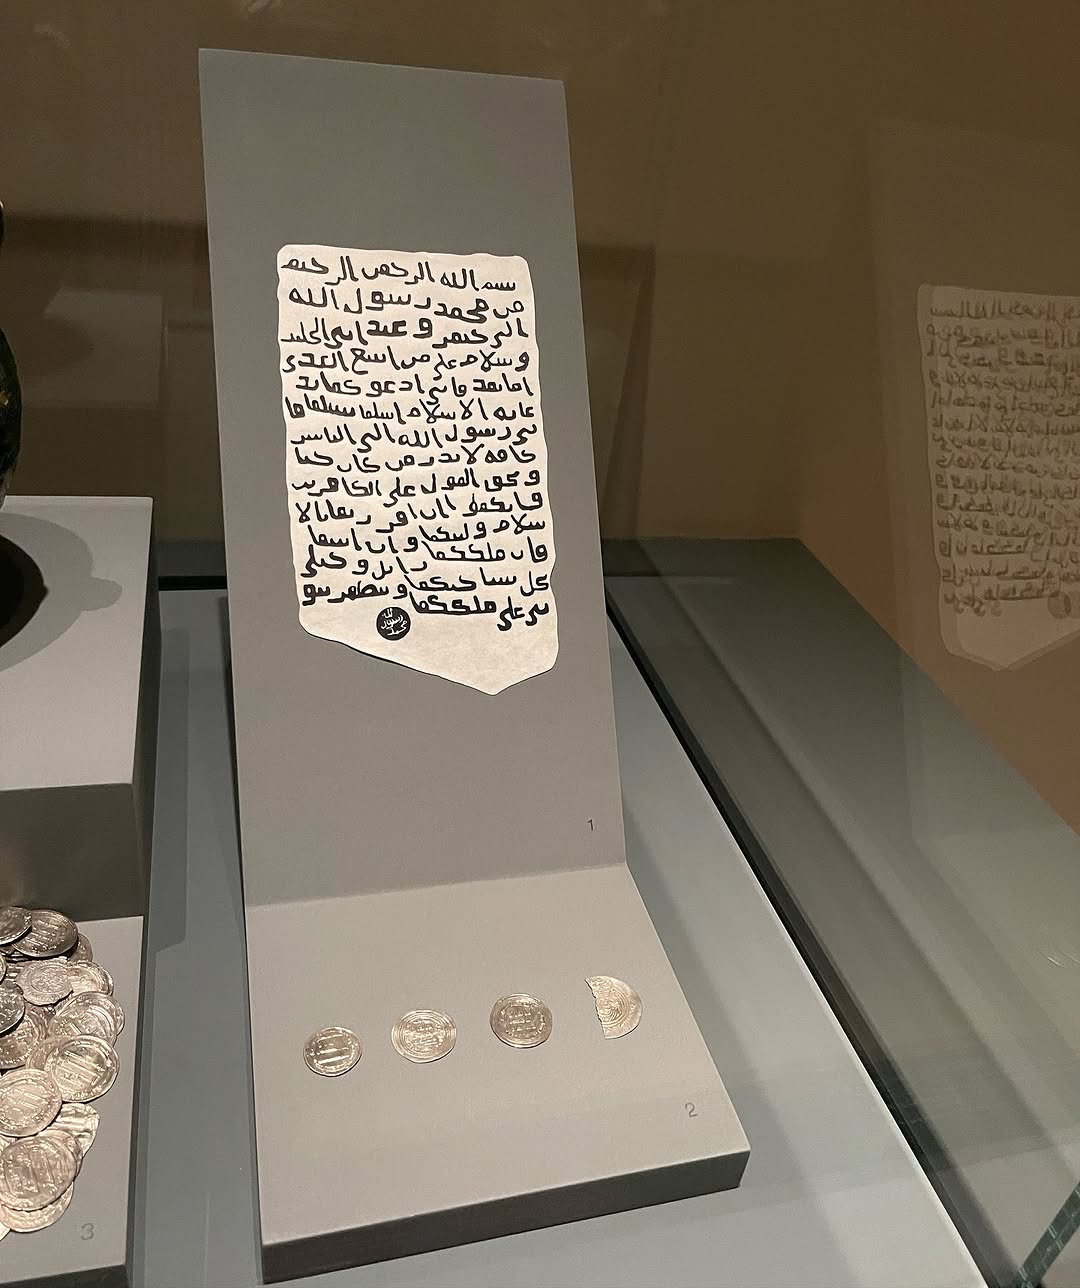 بسم الله الرحمن الرحيم
من محمد رسول الله
الى جيفر وعبد ابنى الجلند
وسلام على من اتبع الهدى
اما بعد فانى ادعوكما بد
عايه الاسلام اسلما تسلما فا
نى رسول الله الى الناس
كافه لانذر من كان حيا
ويحق القول على الكافرين
فانكما ان اقررتما بالا
سلام وليتكما وان ابيتما
فان ملككما زايل وخيلى
تحل بساحتكما وتظهر نبو
تى على ملككما
الله
رسول
محمد
1
2
3